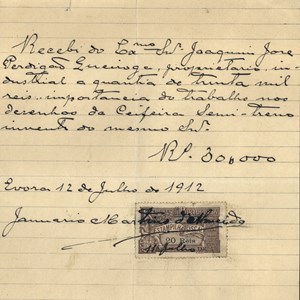 Recebi do Exmo Snr. Joaquim Jose
Perdigão Queiroga, proprietario in-
dustrial a quantia de trinta mil
reis importancia do trabalho nos
desenhos da Ceifeira Semi-treno
invento do mesmo Snr.
RS. 30,000
Evora 12 de Julho de 1912
Januario Martins d'Almeida
20 Reis